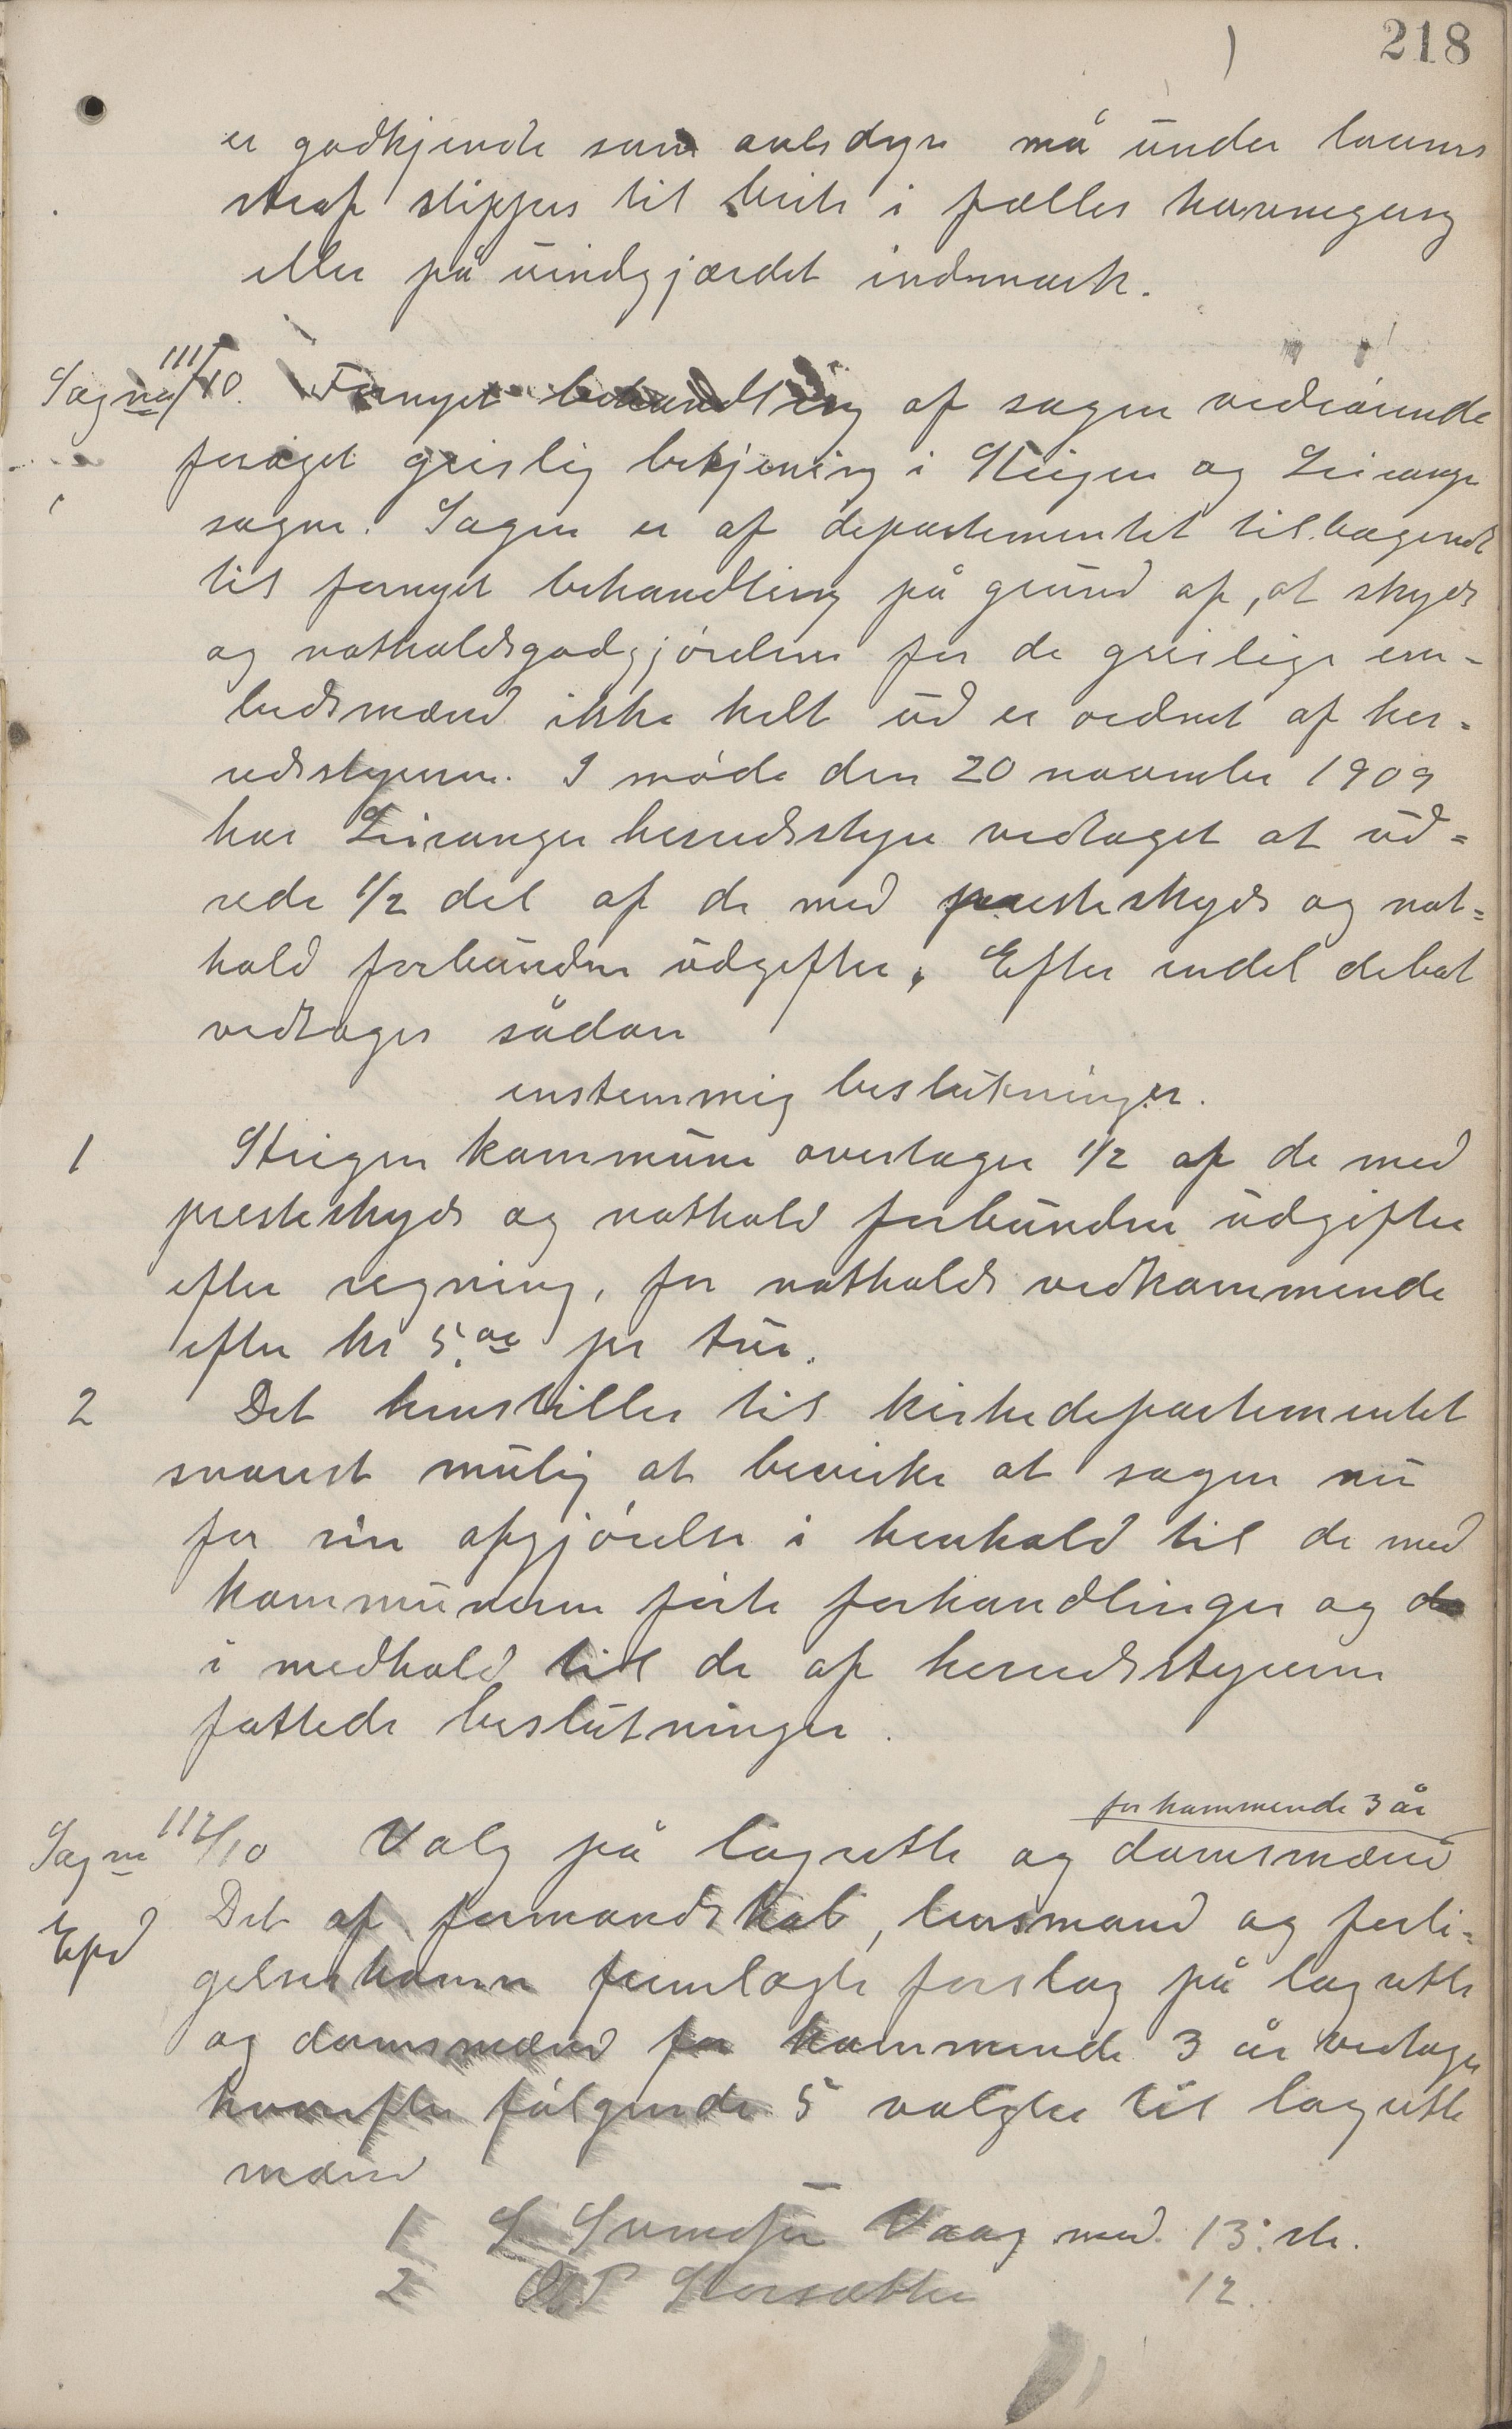 218
er godkjendte som avlsdyr må under lovens
straf slippes til beite i fælles havnegang
eller på uindgjærdet indmark.
Sag no 111/10. Fornyet behandling af sagen vedrørende
forøget geislig betjening i Steigen og Leiranger
sogne. Sagen er af departementet tilbagesendt
til fornyet behandling på grund af, at skyds
og natholdsgodgjørelsen for de geislige em-
bedsmænd ikke helt ud er ordnet af her-
redsstyrerne. I møde den 20 november 1909
har Leiranger herredsstyre vedtaget at ud-
rede 1/2 del af de med presteskyds og nat-
hold forbundne udgifter. Efter endel debat
vedtages sådan
enstemmig beslutninger.
1 Steigen kommune overtager 1/2 af de med
presteskyds og nathold forbundne udgifter
efter regning, for natholds vedkommende
efter kr 5.00 pr tur.
2 Det henstilles til kirkedepartementet
snarest mulig at bevirke at sagen nu
får sin afgjørelse i henhold til de med
kommunerne førte forhandlinger og de
i medhold til de af herredsstyrerne
fattede beslutninger.
for kommende 3 år
Sag no 112/10 Valg på lagrette og domsmænd
Exp Det af formandskab, lensmand og forli-
gelseskomm fremlagte forslag på lagrette
og domsmænd for kommende 3 år vedtages
hvorefter følgende 5 valgtes til lagrette
mænd
1 S Svendsen Vaag med 13 st.
2 P Storsætter 12.